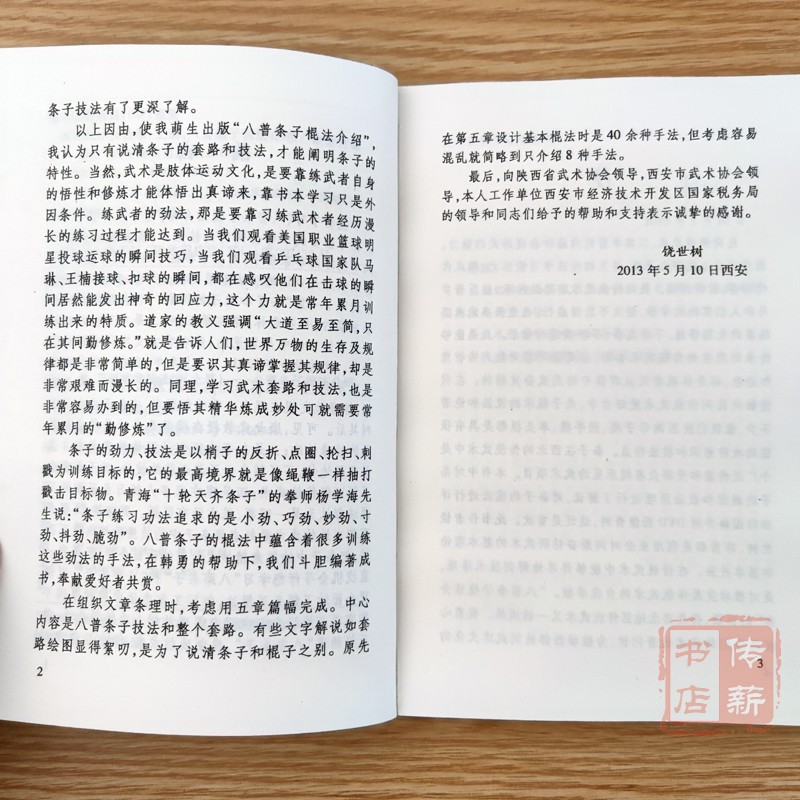 条子技法有了更深了解。
以上因由,使我萌生出版“八普条子棍法介绍”,
我认为只有说清条子的套路和技法,才能阐明条子的
特性。当然,武术是肢体运动文化,是要靠练武者自身
的悟性和修炼才能体悟出真谛来,靠书本学习只是外
因条件。练武者的劲法,那是要靠习练武术者经历漫
长的练习过程才能达到。当我们观看美国职业篮球明
星投球运球的瞬间技巧,当我们观看乒乓球国家队马
琳、王楠接球、扣球的瞬间,都在感叹他们在击球的瞬
间居然能发出神奇的回应力,这个力就是常年累月训
练出来的特质。道家的教义强调“大道至易至简,只
在其间勤修炼。”就是告诉人们,世界万物的生存及规
律都是非常简单的,但是要识其真谛掌握其规律,却是
非常艰难而漫长的。同理,学习武术套路和技法,也是
非常容易办到的,但要悟其精华炼成妙处可就需要常
年累月的“勤修炼”了。
条子的劲力、技法是以梢子的反折、点圈、轮扫、刺
戳为训练目标的,它的最高境界就是像绳鞭一样抽打
戳击目标物。青海“十轮天齐条子”的拳师杨学海先
生说:“条子练习功法追求的是小劲、巧劲、妙劲、寸
劲、抖劲、脆劲”。八普条子的棍法中蕴含着很多训练
这些劲法的手法,在韩勇的帮助下,我们斗胆编著成
书,奉献爱好者共赏。
在组织文章条理时,考虑用五章篇幅完成。中心
内容是八普条子技法和整个套路。有些文字解说如套
路绘图显得絮叨,是为了说清条子和棍子之别。原先
2
在第五章设计基本棍法时是 40 余种手法,但考虑容易
混乱就简略到只介绍 8 种手法。
最后,向陕西省武术协会领导,西安市武术协会领
导,本人工作单位西安市经济技术开发区国家税务局
的领导和同志们给予的帮助和支持表示诚挚的感谢。
饶世树
2013 年 5 月 10 日西安
3
传薪
书店